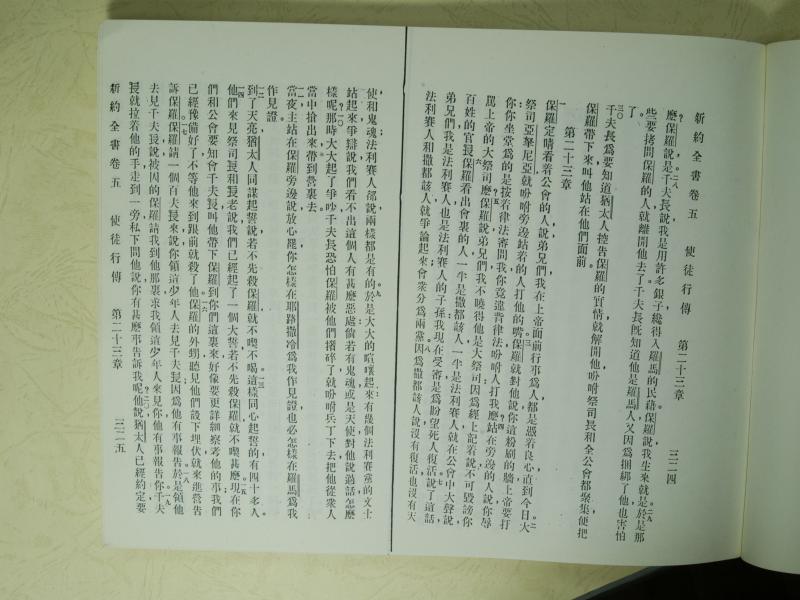 新約全書卷五　使徒行傳　第二十三章　三二四
麼保羅說是二八千夫長說我是用許多銀子纔得入羅馬的民籍保羅說我生來就是二九於是那
些要拷問保羅的人就離開他去了千夫長旣知道他是羅馬人又因爲捆綁了他也害怕
了
三〇千夫長爲要知道猶太人控告保羅的實情就解開他吩咐祭司長和全公會都聚集便把
保羅帶下來叫他站在他們面前
第二十三章
一保羅定睛看着公會的人說弟兄們我在上帝面前行事爲人都是憑着良心直到今日二大
祭司亞拏尼亞就吩咐旁邊站着的人打他的嘴三保羅就對他說你這粉刷的牆上帝要打
你你坐堂爲的是按着律法審問我你竟違背律法吩咐人打我麼四站在旁邊的人說你辱
罵上帝的大祭司麼五保羅說弟兄們我不曉得他是大祭司因爲經上記着說不可毀謗你
百姓的官長六保羅看出會裏的人一半是撒都該人一半是法利賽人就在公會中大聲說
弟兄們我是法利賽人也是法利賽人的子孫我現在受審是爲盼望死人復活七說了這話
法利賽人和撒都該人就爭論起來會衆分爲兩黨八因爲撒都該人說沒有復活也沒有天
使和鬼魂法利賽人卻說兩樣都是有的九於是大大的喧嚷起來有幾個法利賽黨的文士
站起來爭辯說我們看不出這個人有甚麼惡處倘若有鬼魂或是天使對他說過話怎麼
樣呢一〇那時大大起了爭吵千夫長恐怕保羅被他們撦碎了就吩咐兵丁下去把他從衆人
當中搶出來帶到營裏去
一一當夜主站在保羅旁邊說放心罷你怎樣在耶路撒冷爲我作見證也必怎樣在羅馬爲我
作見證
一二到了天亮猶太人同謀起誓說若不先殺保羅就不喫不喝一三這樣同心起誓的有四十多人
一四他們來見祭司長和長老說我們已經起了一個大誓若不先殺保羅就不喫甚麼一五現在你
們和公會要知會千夫長叫他帶下保羅到你們這裏來好像要更詳細察考他的事我們
已經豫備好了不等他來到跟前就殺了他一六保羅的外甥聽見他們設下埋伏就來進營告
訴保羅一七保羅請一個百夫長來說你領這少年人去見千夫長因爲他有事報告一八於是領他
去見千夫長說被囚的保羅請我到他那裏求我領這少年人來見你他有事報告你一九千夫
長就拉着他的手走到一旁私下問他說你有甚麼事告訴我呢二〇他說猶太人已經約定要
新約全書卷五　使徒行傳　第二十三章　三二五